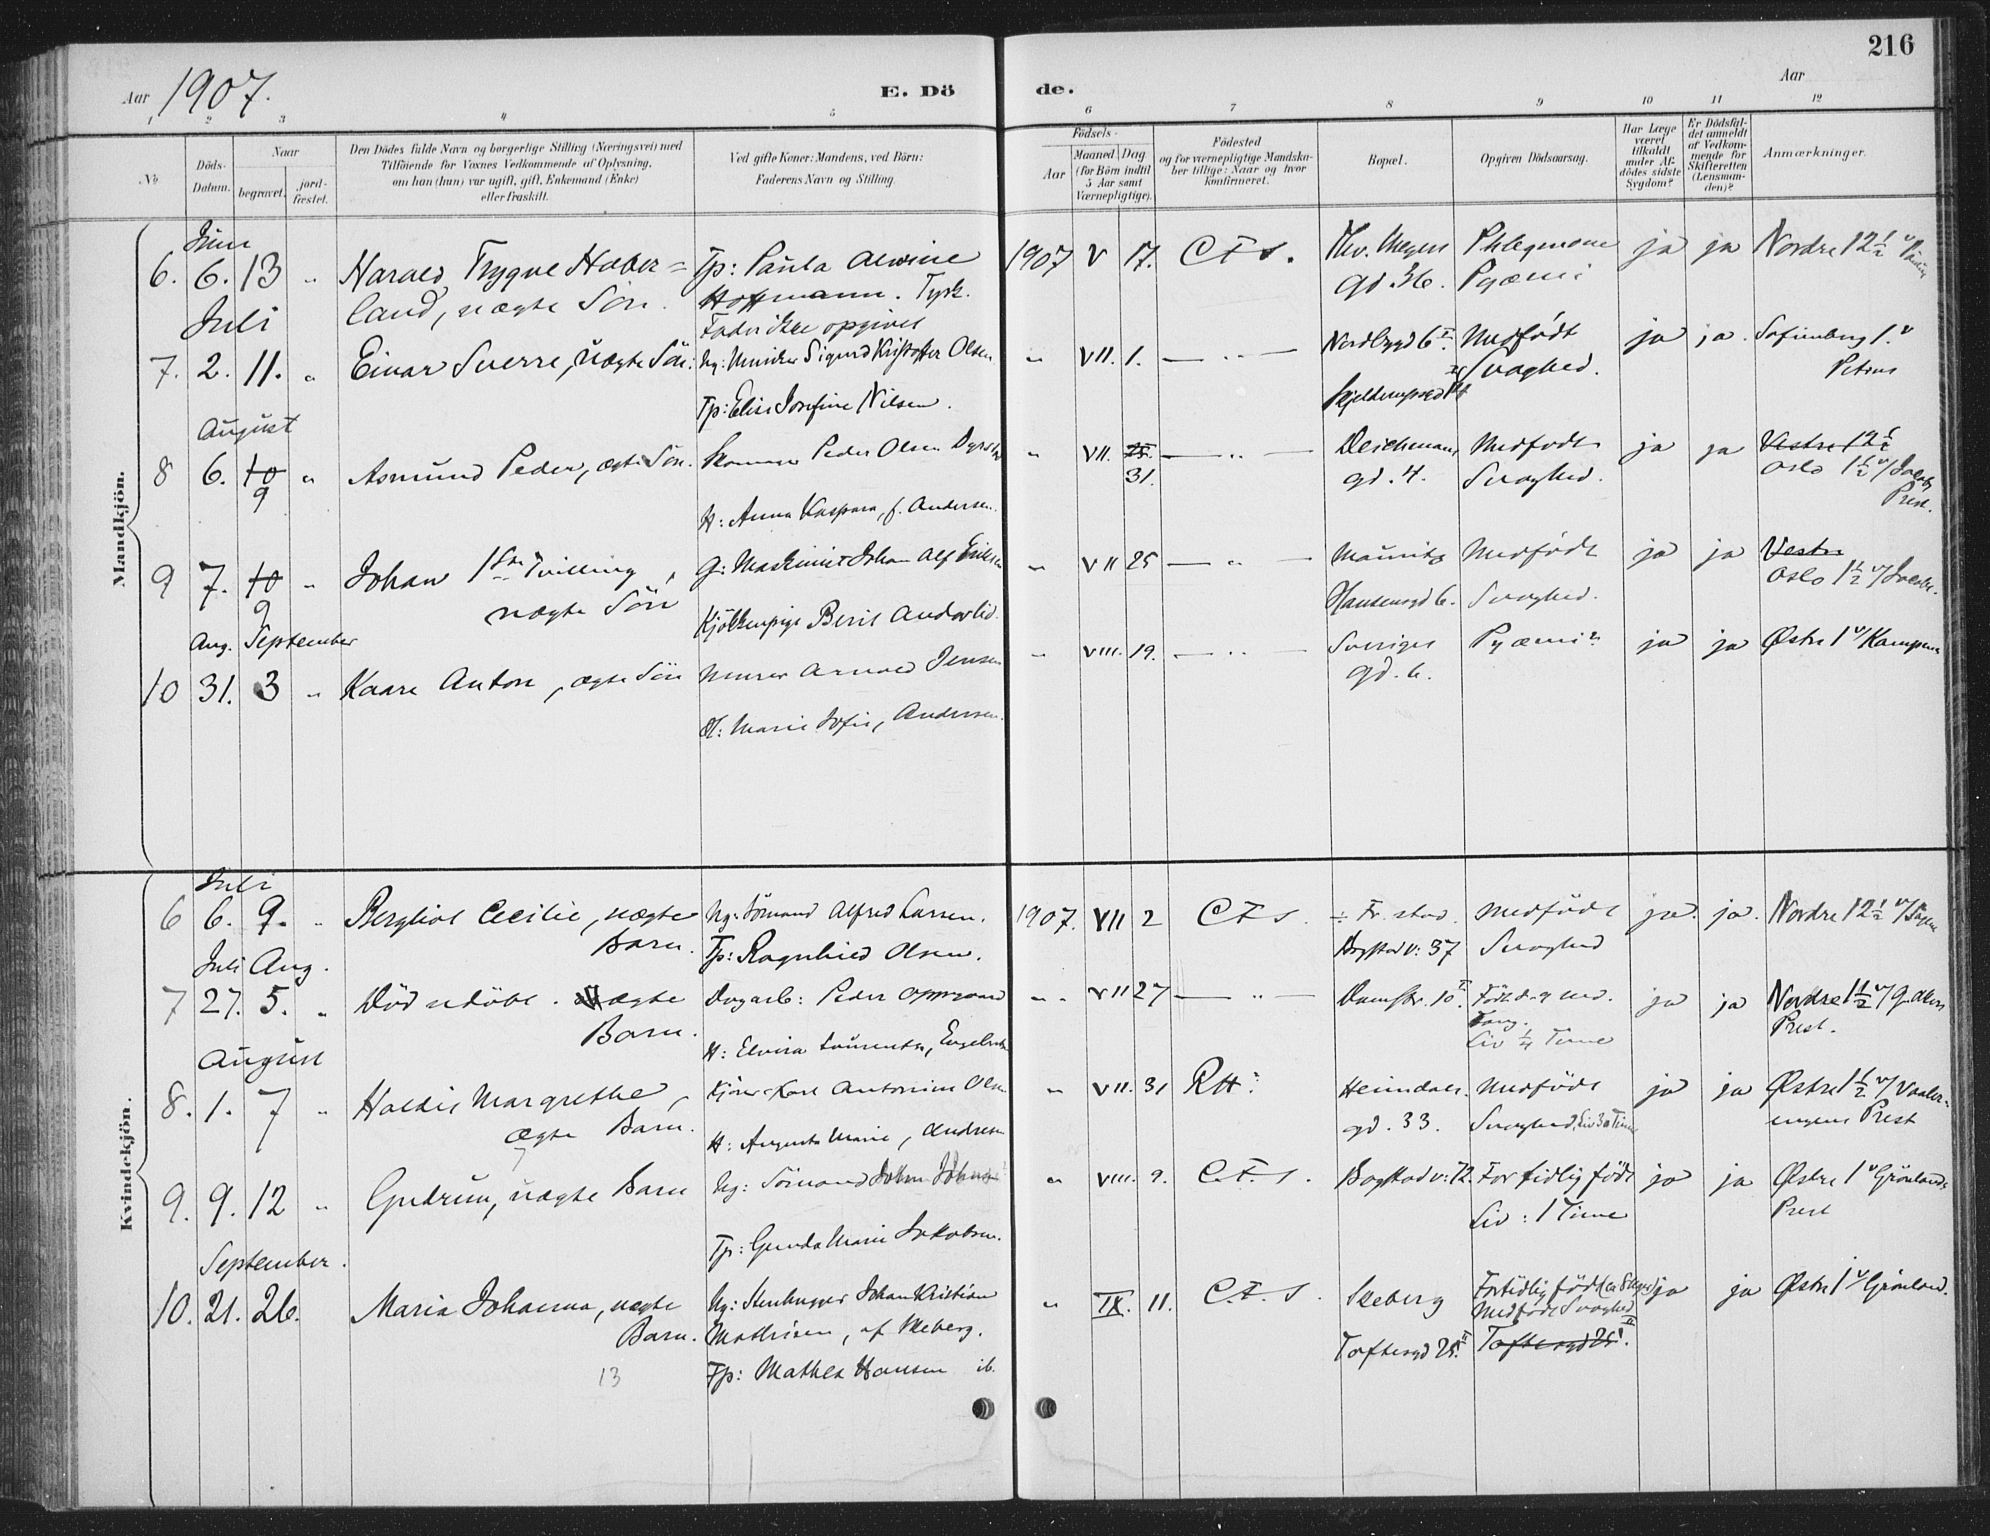 216
Aar 1907.
E. Döde.
Aar
1 2 3 4 5 6 7 8 9 10 11 12
№
Döds-Datum.
Naar
begravet.
jord-fæstet.
Den Dödes fulde Navn og borgerlige Stilling (Næringsvei) med
Tilföiende for Voxnes Vedkommende af Oplysning,
om han (hun) var ugift, gift, Enkemand (Enke)
eller fraskilt.
Ved gifte Koner: Mandens, ved Börn:
Faderens Navn og Stilling.
Födsels-
Aar
Maaned Dag
(for Börn indtil
5 Aar samt
Værnepligtige).
Födested
og for værnepligtige Mandska-
ber tillige: Naar og hvor
konfirmeret.
Bopæl.
Opgiven Dödsaarsag.
Har Læge
været
tilkaldt
under Af-
dödes sidste
Sygdom?
Er Dödsfal-
det anmeldt
af Vedkom-
mende for
Skifteretten
(Lensman-
den)?
Anmærkninger.
Mandkjön.
Juni
6. 6. 13 " Harald Trygve Haber= Tp: Paula Alwine 1907 V 17. C F S. Thv. Meyers Phlegmone ja ja Nordre 12½
land, uægte Sön. Hoffmann. Tysk. gd. 36. Pyæmi
Juli
Fader ikke opgivet
7. 2. 11. " Einar Sverre, uægte Sön. Ug: Sigurd Kristoffer Olsen " VII. 1. — " — Nordbygd 6 Medfödt ja ja. Sofienberg 1. v
Tp: Elise Josefine Nilsen. Svaghed. Petrus
August
8 6. 10 " Asmund Peder, ægte Sön. Peder Olsen " VII. 25. — " — Deichmans Medfödt ja ja Vestre 12½
9 31. gd. 4. Svaghed. Oslo 1½ v/Jacobs
H: Anna Kaspara, f. Andersen. Prest.
9 7. 10 " Johan 1ste Tvilling, G: Maskinist Johan Alf Eriksen " VII 25 — " — Mauritz Medfödt ja ja Vestre
9 uægte Sön Kjökkenpige Berit Hansensgd 6. Svaghed. Oslo 1½ v/Jacobs.
Aug. September
10 31. 3 " Kaare Anton, ægte Sön Murer Arnold Jensen " VIII. 19. — " — Sveriges Pyæmi ja ja Østre 1 v/Kampens
gd. 6.
H: Marie Sofie, Andersen.
Kvindekjön.
Juli
6 6. 9. " Bergliot Cecilie, uægte Ug: Sömand Alfred Larsen. 1907. VII 2 C F S. ÷ Fr. stad. Medfödt ja. ja. Nordre 12½ v/Sagene
Barn. Tp: Ragnhild Olsen. Bogstad v: 37 Svaghed
Juli Aug.
7 27. 5. " Död udöbt. Uægte Dagarb: Peder " " VII 27 — " — Damstr. 10 ja ja Nordre 1½ v/G. Akers
Barn. Tang. Prest.
H: Elvira Laurentse, Liv ¼ Time
August
8. 1. 7 " Haldis Margrethe, Karl Antonius Olsen " VII. 31 RH: Heimdals Medfödt ja ja Østre 1½ v/Vaaler=
ægte Barn. H: Augusta Marie, Andresen gd. 33. Svaghed, Liv 30 Time engens Prest
9. 9. 12 " Gudrun, uægte Barn Ug: Sömand Johan " VIII. 9. C. F. S. Bogstad v: 72. For tidlig födt ja ja Østre 1 v Grönlands
Liv: 1 Time Prest
Tp: Gunda Marie Jakobsen.
September.
10. 21. 26. Maria Johanna, uægte Ug: Stenhugger Johan Kristian " IX. 11. C. F. S. Skeberg For tidlig födt ja ja Østre 1 v/Grönland.
Barn. Mathisen, af Skeberg. Medfödt Svaghed
Toftesgd 25. II Toftesgd 25.
13 Fp: Mathea Hansen ib.